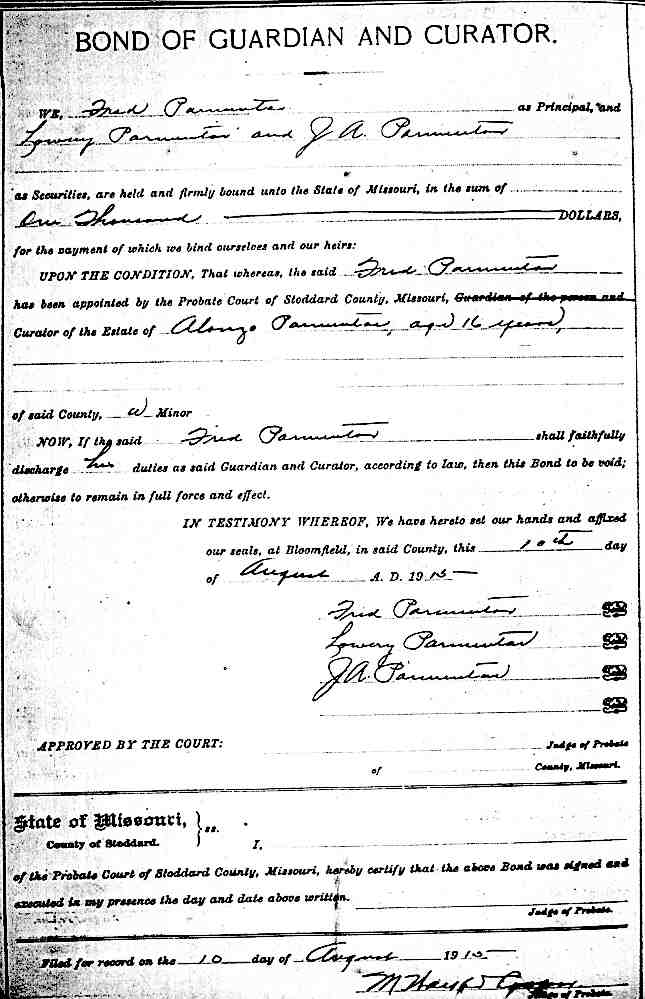 BOND OF GUARDIAN AND CURATOR.
WE, Fred Parmenter as Principal, and
Lowery Parmenter and J A. Parmenter
as Securities, are held and firmly bound unto the State of Missouri, in the sum of
One Thousand DOLLARS,
for the payment of which we bind ourselves and our heirs:
UPON THE CONDITION, That whereas, the said Fred Parmenter
has been appointed by the Probate Court of Stoddard County, Missouri, Guardian of the person and
Curator of the Estate of Alonzo Parmenter, age 16 years,
of said County, a Minor
NOW, If the said Fred Parmenter shall faithfully
discharge his duties as said Guardian and Curator, according to law, then this Bond to be void;
otherwise to remain in full force and effect.
IN TESTIMONY WHEREOF, We have hereto set our hands and affixed
our seals, at Bloomfield, in said County, this 10th day
of August A. D. 1915
Fred Parmenter
Lowery Parmenter
J A. Parmenter
APPROVED BY THE COURT: Judge of Probate
of County, Missouri.
State of Missouri, } ss.
County of Stoddard. I,
of the Probate Court of Stoddard County, Missouri, hereby certify that the above Bond was signed and
executed in my presence the day and date above written.
Judge of Probate.
Filed for record on the 10 day of August 1915
Judge of Probate.